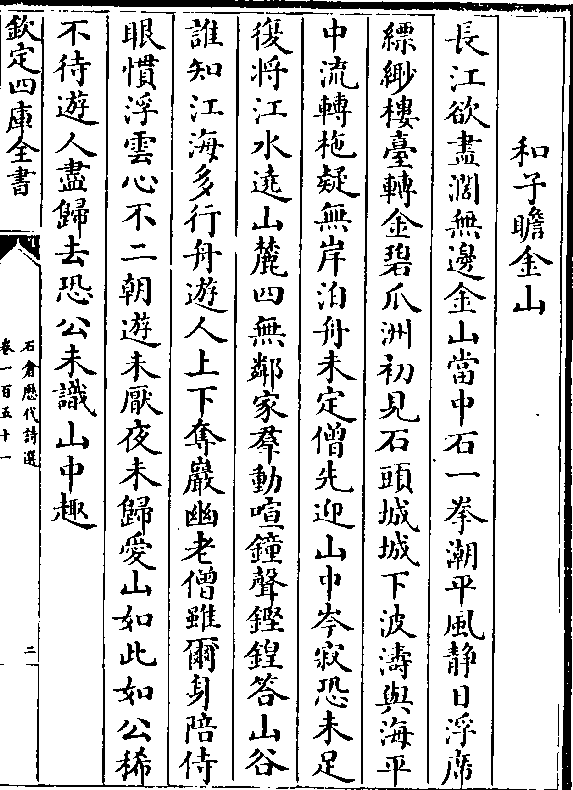 和子瞻金山
長江欲盡濶無邊金山當中石一拳潮平風静日浮席
縹緲樓臺轉金碧瓜洲初見石頭城城下波濤與海平
中流轉柂疑無岸泊舟未定僧先迎山中岑寂恐未足
復将江水遶山麓四無鄰家羣動喧鐘聲鏗鍠答山谷
誰知江海多行舟遊人上下奪巖幽老僧雖爾身陪侍
眼慣浮雲心不二朝遊未厭夜未歸愛山如此如公稀
不待遊人盡歸去恐公未識山中趣
欽定四庫全書
石倉歷代詩選
卷一百五十一
二